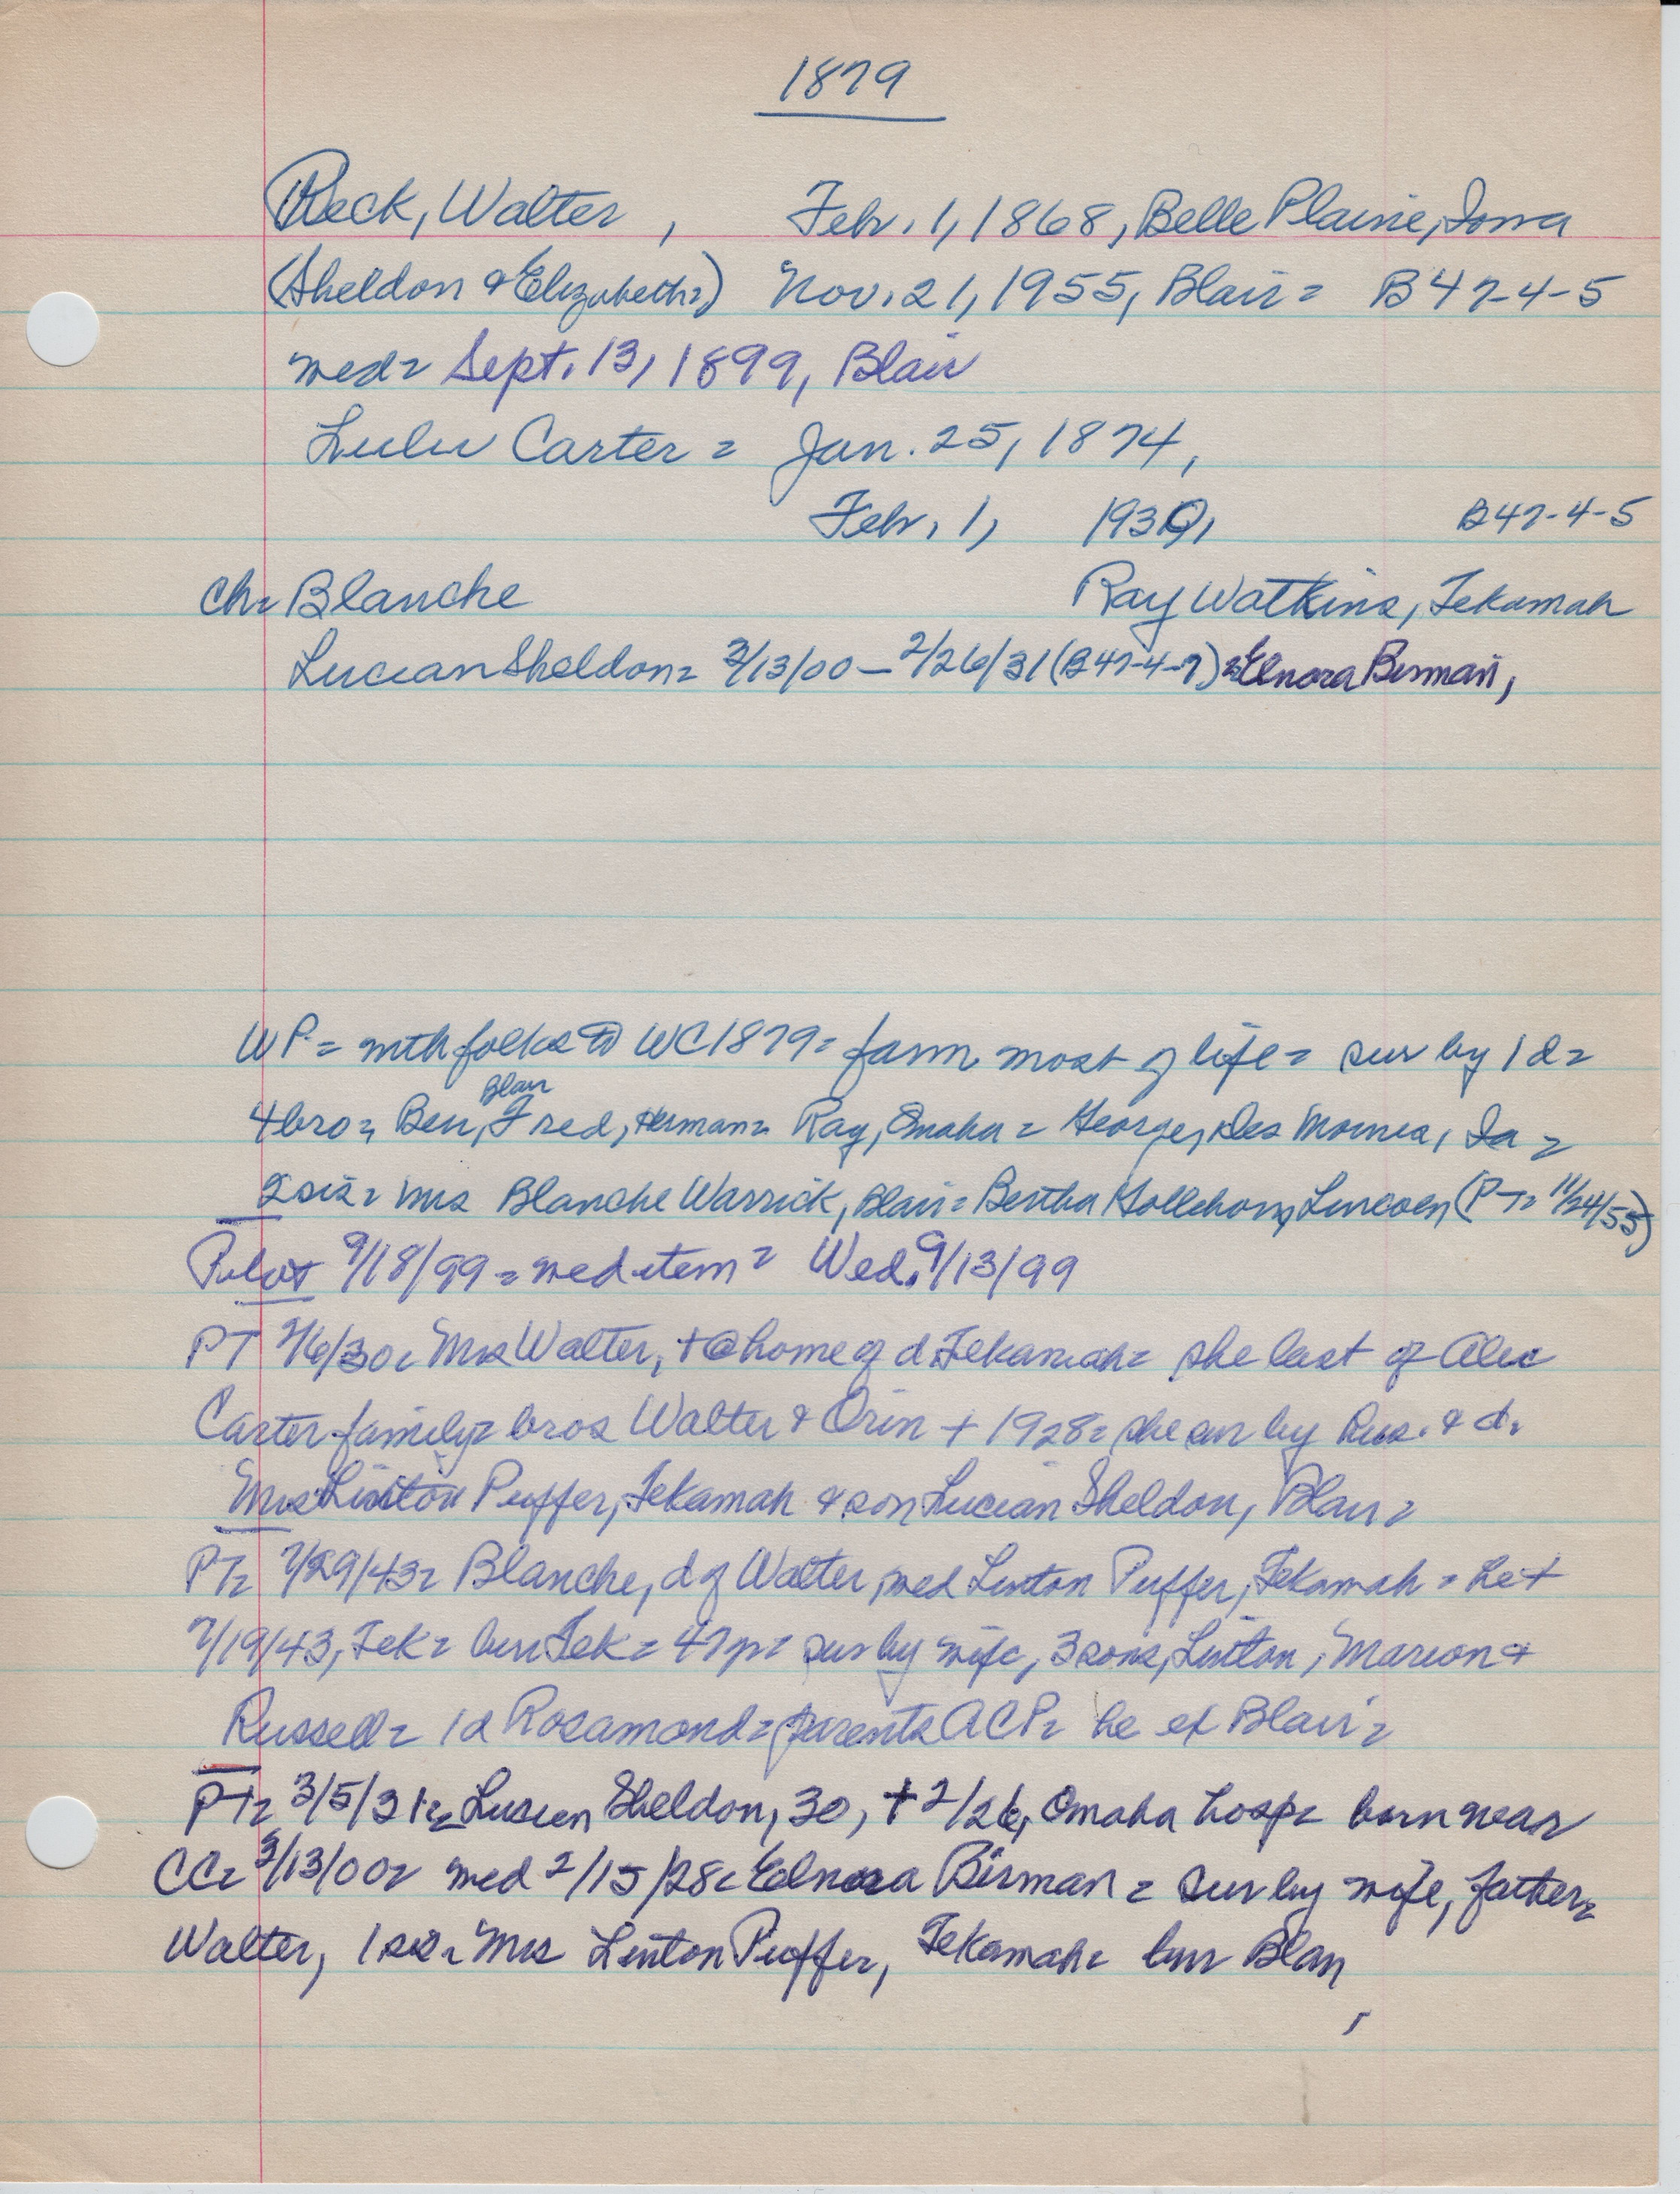 1879
Peck, Walter, Feb. 1, 1868, Belle Plaine, Iowa
(Sheldon & Elizabeth=) Nov. 21, 1955, Blair = B47-4-5
med= Sept. 13, 1899, Blair
Lulu Carter = Jan. 25, 1874,
Feb. 1, 1930, B47-4-5
ch= Blanche Ray Watkins, Tekamah
Lucian Sheldon= 3/13/00 - 2/26/31 (B47-4-7) = Elnora Birman,
WP = with folks to WC 1879 = farm most of life = sur by 1 d =
4 bro = Ben, Fred, Herman = Ray, Omaha = George, Des Moines, Ia =
Blair
2 sis = Mrs Blanche Warrick, Blair = Bertha Lincoln (PT= 11/24/55)
Pilot 9/18/99 = med item = Wed. 9/13/99
PT 2/6/30= Mrs Walter, + @ home of d Tekamah= she last of Alec
Carter family= bros Walter & Orin + 1928= she sur by hus. & d.
Mrs Linton Puffer, Tekamah & son Lucian Sheldon, Blair =
PT= 7/29/43= Blanche, d of Walter, med Linton Puffer, Tekamah = he +
7/19/43, Tek= bur Tek= 47 yr= sur by wife, 3 sons, Linton, Marion &
Russell= 1 d Rosamond= parents ACP= he ex Blair=
PT= 3/5/31= Lucien Sheldon, 30, + 2/26, Omaha hosp= born near
CC= 3/13/00= med 2/15/28= Elnora Birman = sur by wife, father=
Walter, 1 sis= Mrs Linton Puffer, Tekamah= bur Blair,